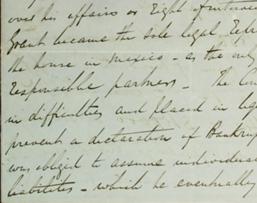 over his affairs as Eight
Grant became the sole legal
the house in Mexico – as the only
responsible partners – The
in difficulties and placed in
prevent a declaration of Bankrup
was obliged to assume individua
liabilities – which he eventually